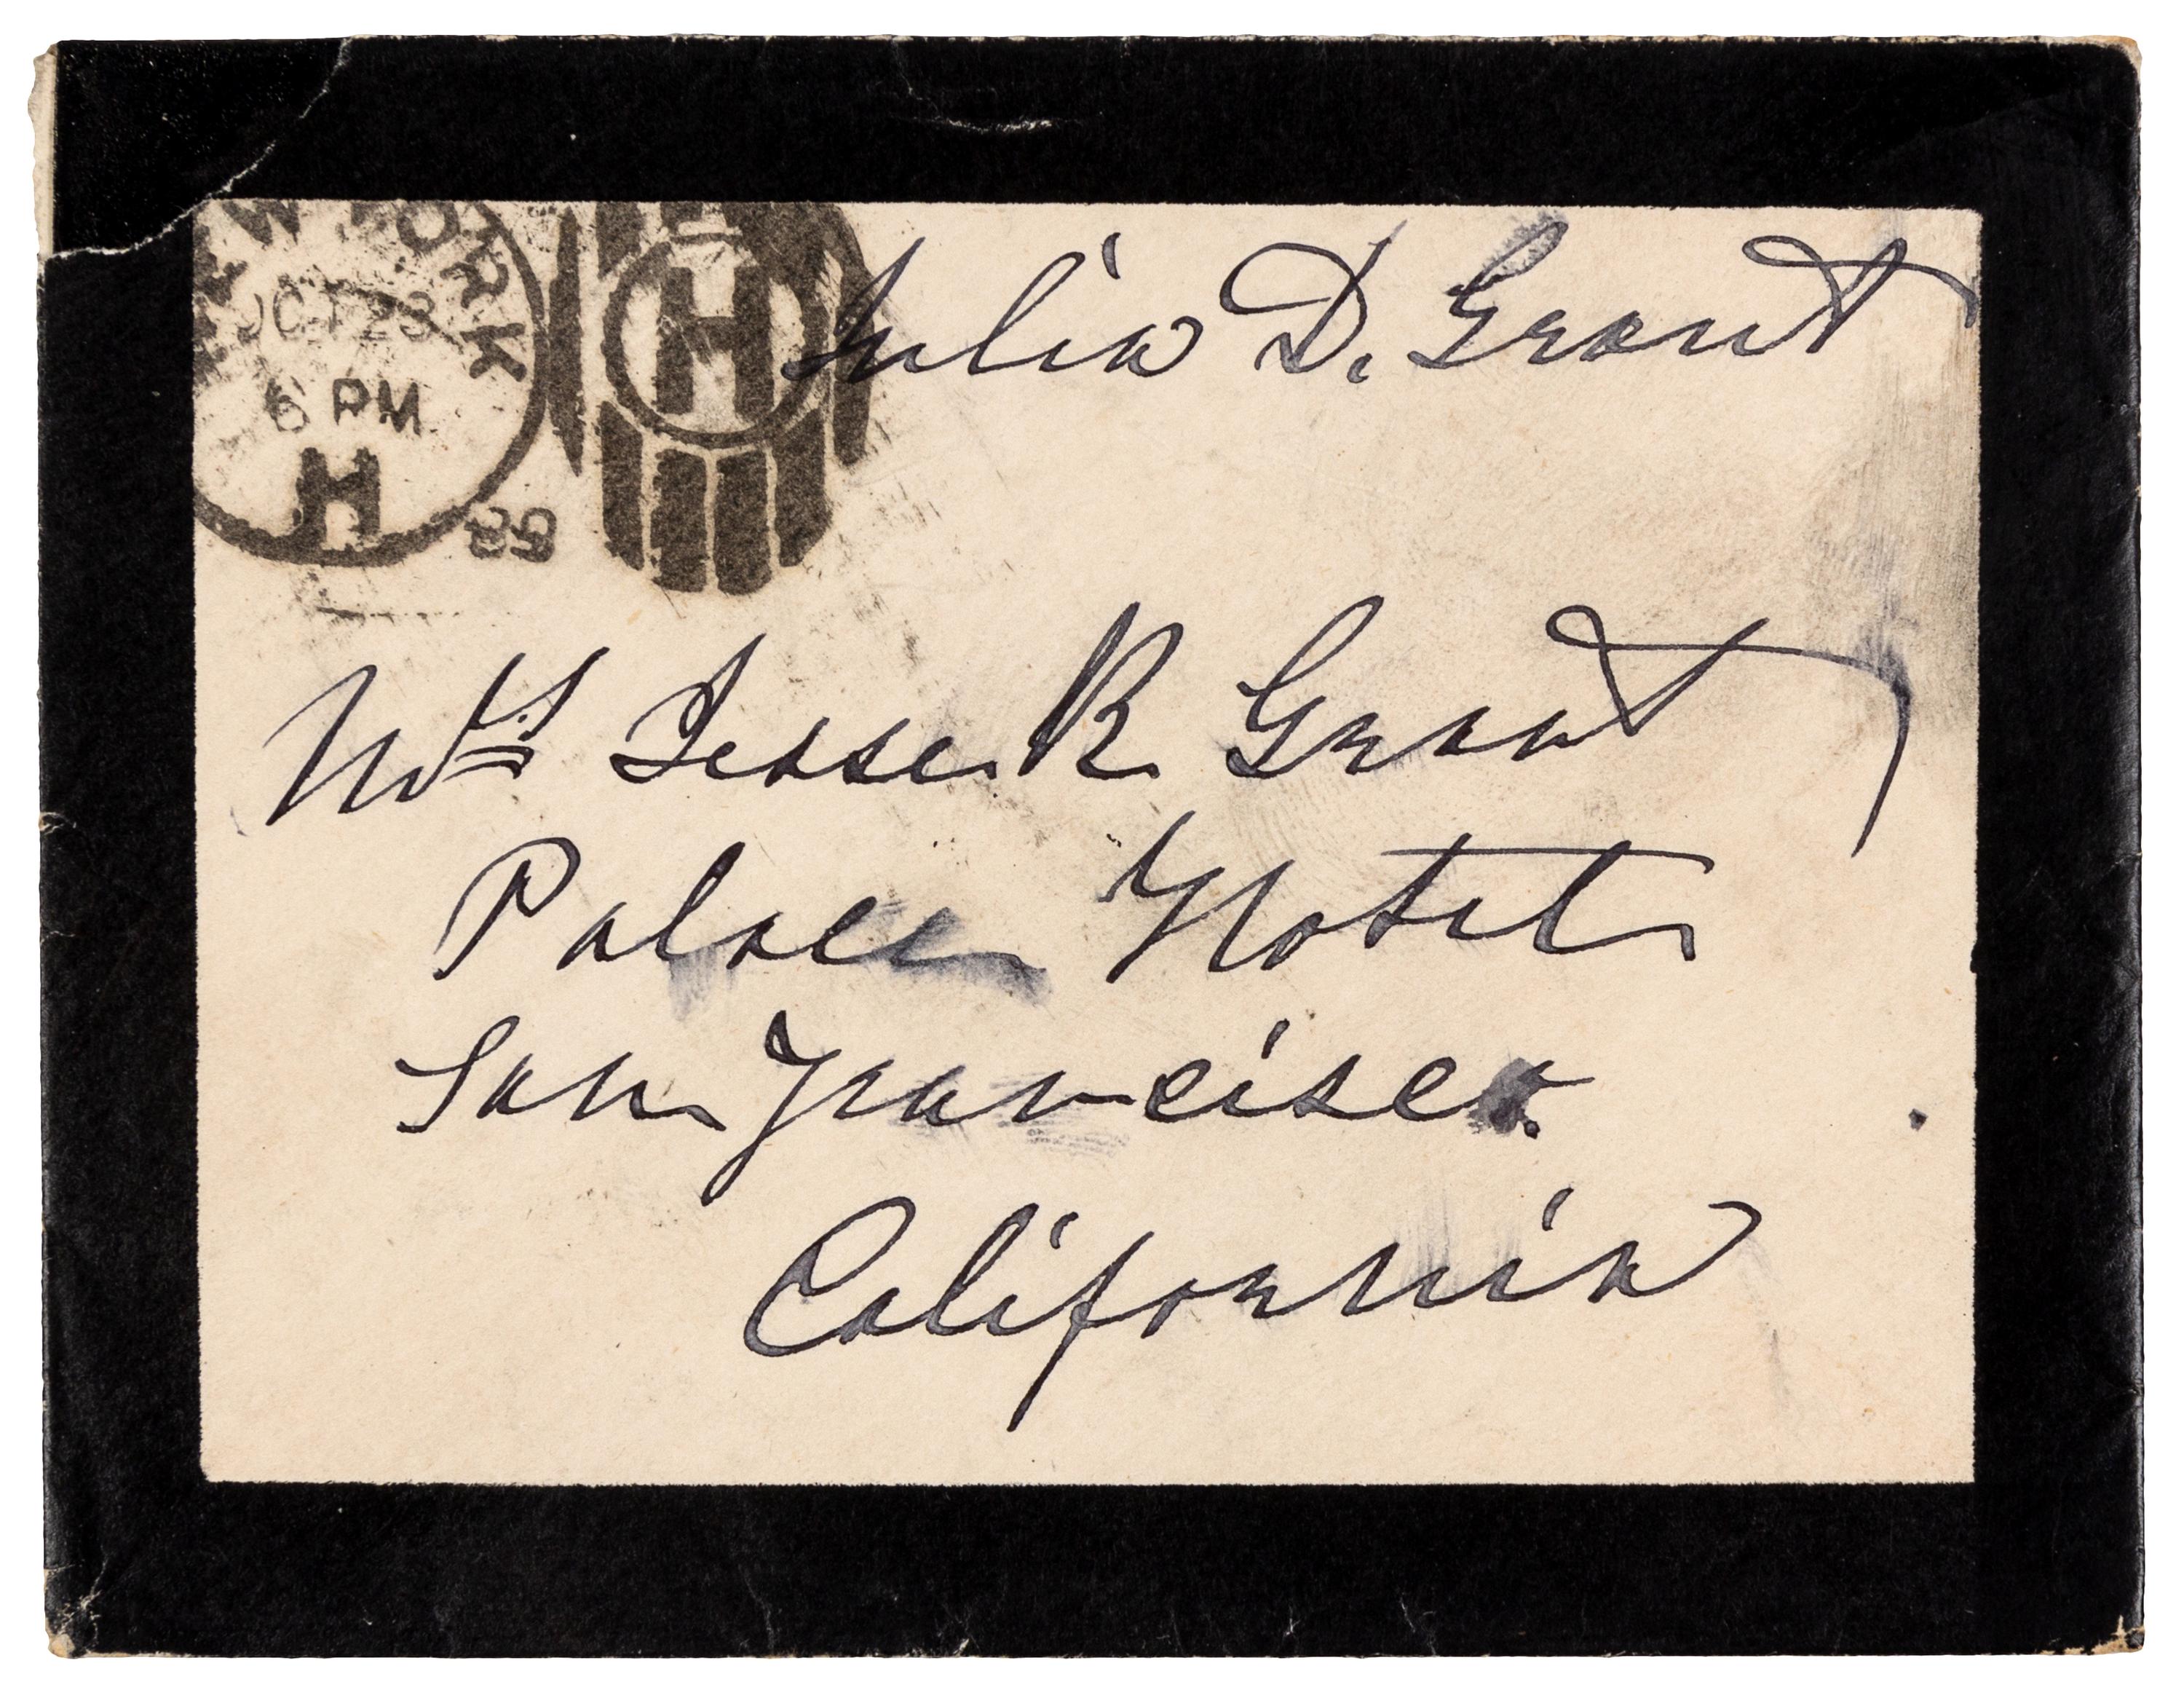 NEW YORK
OCT 23
6 PM
H
H
Julia D. Grant
Mrs Jesse R. Grant
Palace Hotel
San Francisco.
California